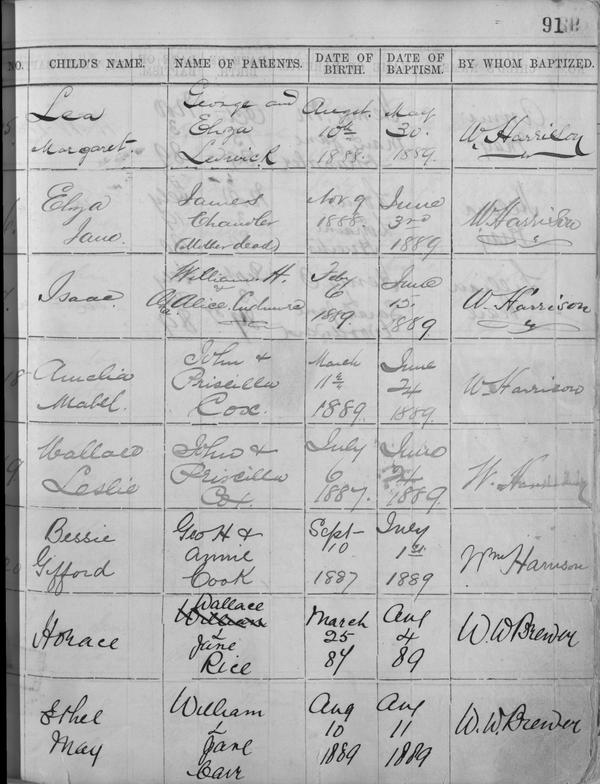 91
NO. CHILD'S NAME. NAME OF PARENTS. DATE OF BIRTH. DATE OF BAPTISM. BY WHOM BAPTIZED.
Lea George and Augst. May
Eliza 10th 30. W. Harrison
Margaret. Ledwick 1888. 1889.
Eliza James Nov 9 June
Chandler 1888. 3rd W Harrison
Jane. (Mother dead) 1889
William H. Feby June
Isaac. & Alice 6 15. W. Harrison
1889. 1889
18 John & March June
Amelia Priscilla 11th 24 W Harrison
Mabel. Cox. 1889. 1889.
19 Wallace John & July June
Priscilla 6 24
Leslie Cox. 1887. 1889. W. Harrison
Bessie Geo H & Sept- July
20 Annie 10 1st Wm Harrison
Gifford Cook 1887 1889
Wallace
William March Aug
Horace & Jane 25 4 W. W Brewer
Rice 87 89
Ethel William Aug Aug
& 10 11 W. W. Brewer
May Jane 1889 1889
Carr